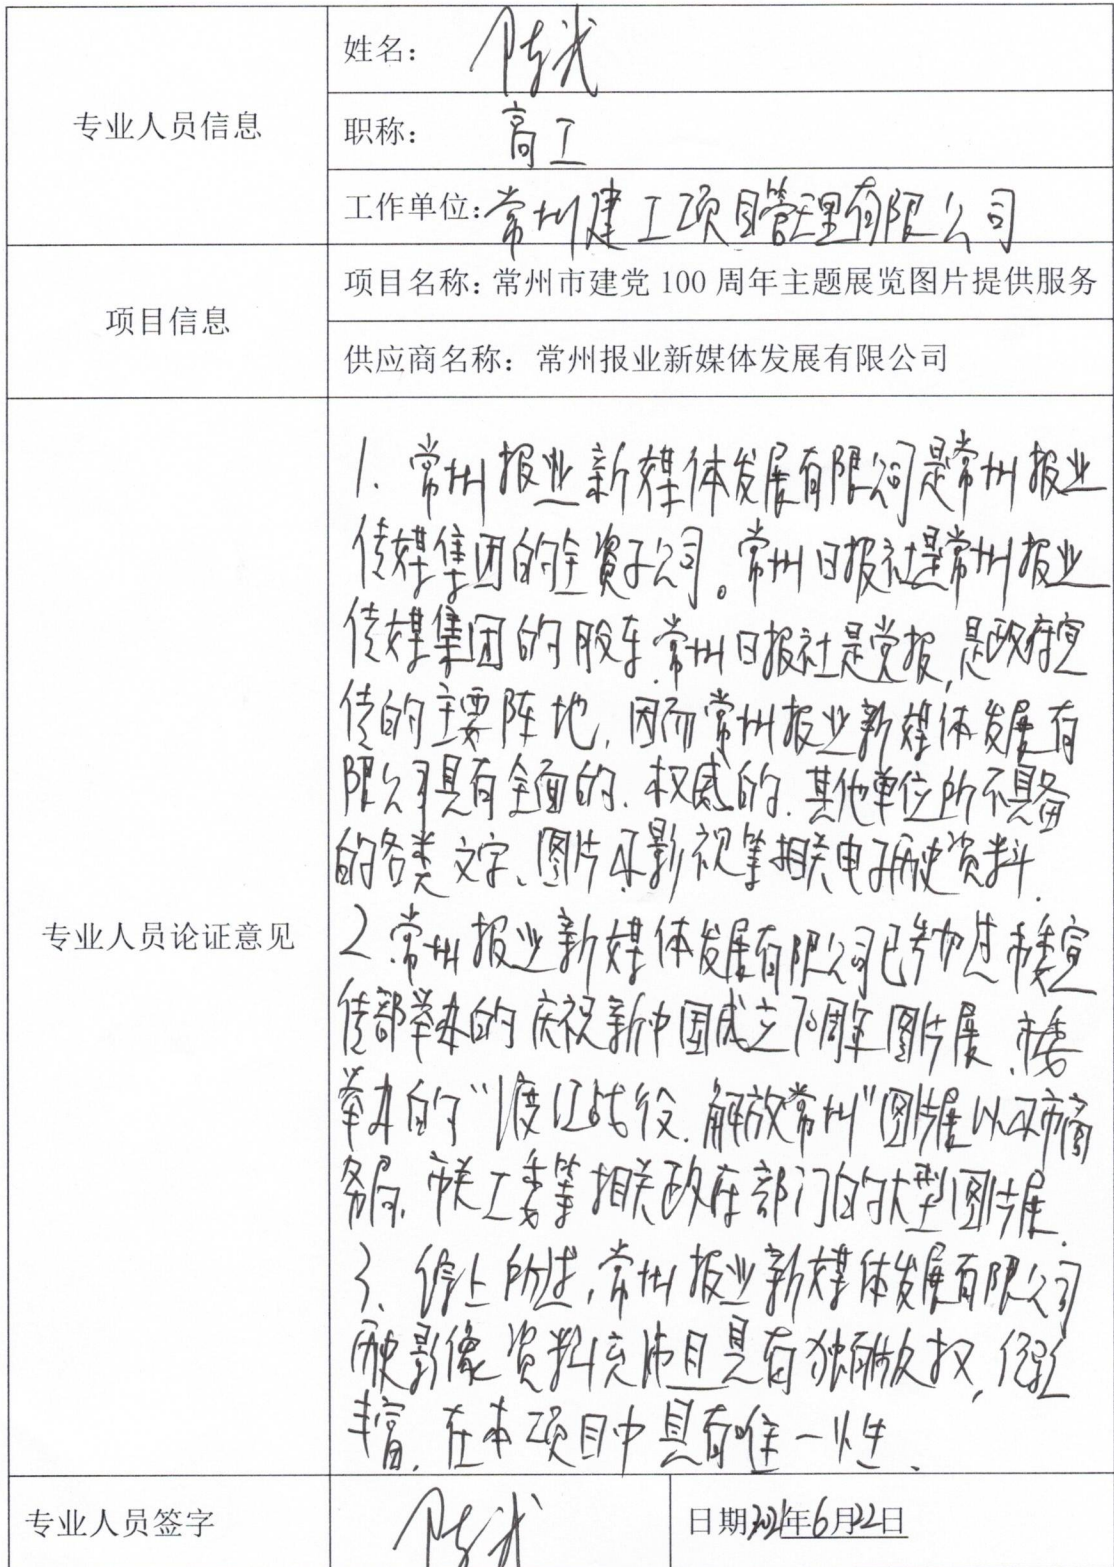 专业人员信息
姓名：
职称：高工
工作单位：常州建工项目管理有限公司
项目信息
项目名称：常州市建党 100 周年主题展览图片提供服务
供应商名称：常州报业新媒体发展有限公司
专业人员论证意见
1、常州报业新媒体发展有限公司是常州报业
传媒集团的全资子公司。常州日报社是常州报业
传媒集团的股东，常州日报社是党报，是政府宣
传的主要阵地，因而常州报业新媒体发展有
限公司具有全面的、权威的、其他单位所不具备
的各类文字、图片及影视等相关电子历史资料.
2、常州报业新媒体发展有限公司已参加过市委宣
传部举办的庆祝新中国成立70周年图片展、市委
举办的“渡江战役、解放常州”图片展以及市商
务局、市关工委等相关政府部门的大型图片展.
3、综上所述，常州报业新媒体发展有限公司
历史影像资料 且具有独有版权，经验
丰富，在本项目中具有唯一性.
专业人员签字
日期2021年6月22日